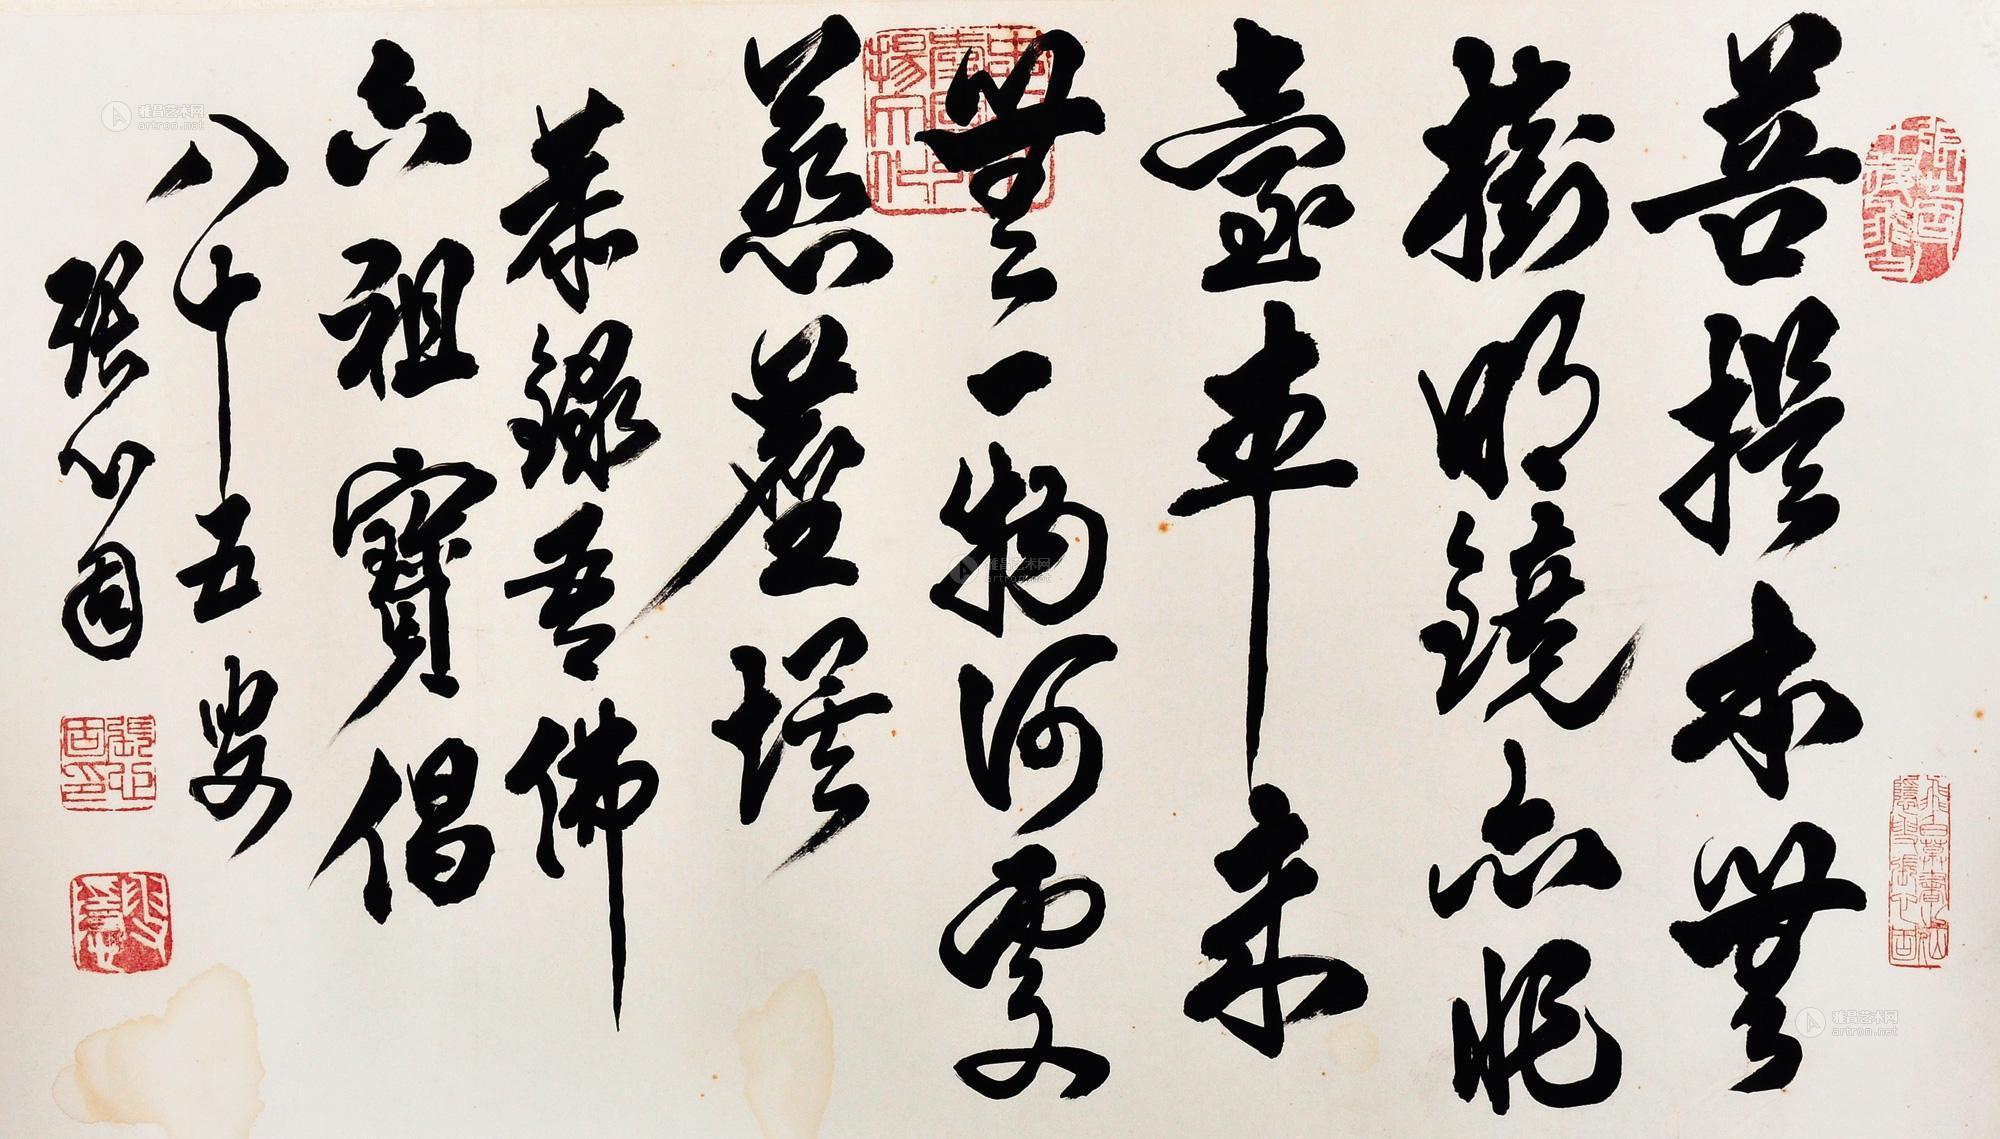 菩提本無
樹明鏡亦非
臺本來
無一物何處
惹塵埃
恭錄吾佛
六祖寶偈
八十五叟
張
雅昌艺术网
artron.net
雅昌艺术网
artron.net
雅昌艺术网
artron.net